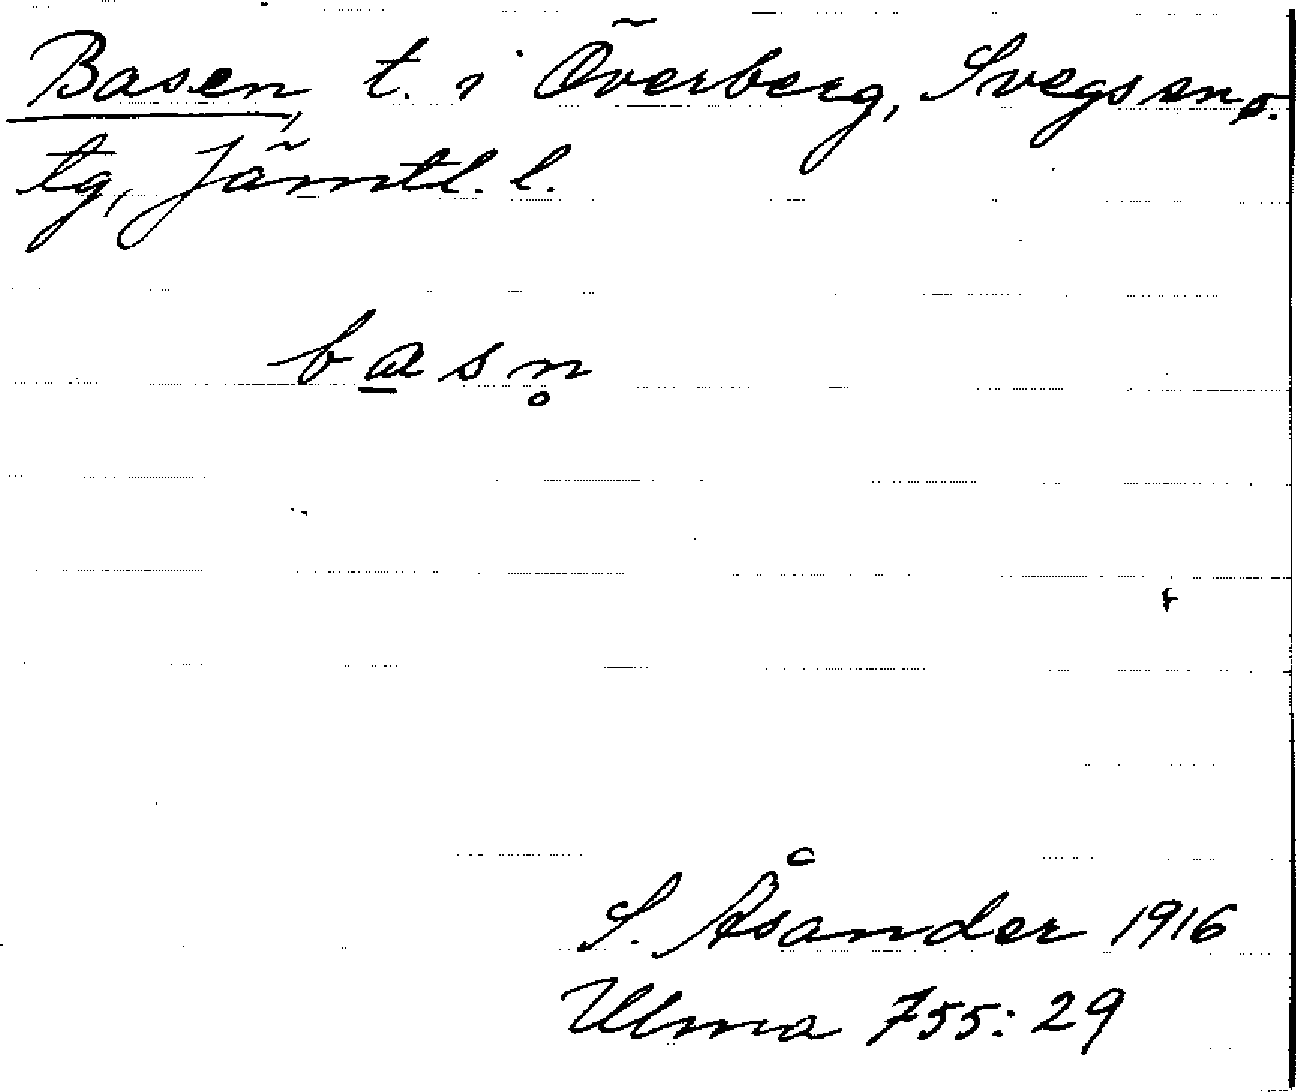 Basen, t. i Överberg, Svegs sn o.
tg, Jämtl. l.
ba̲sn̥
S. Åsander 1916
Ulma 755:29